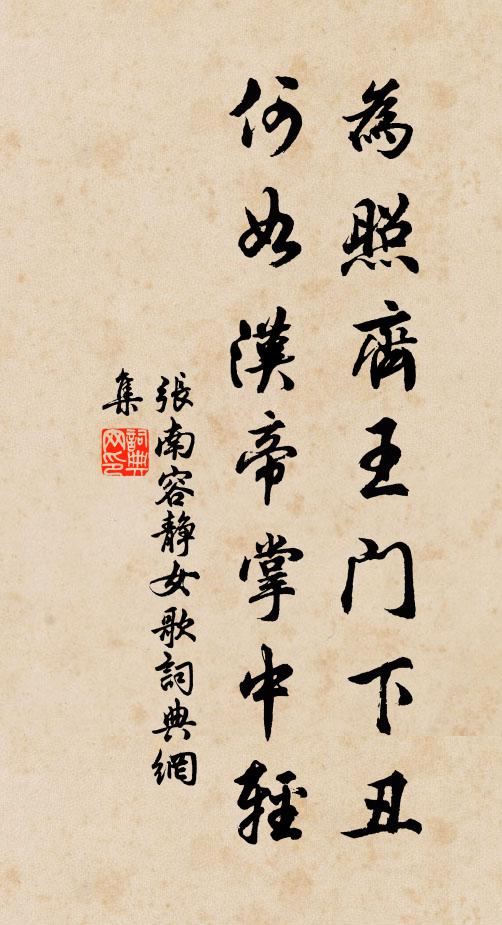 為照齊王門下丑
何如漢帝掌中輕
張南容静女歌詞典網
集
詞典
网印